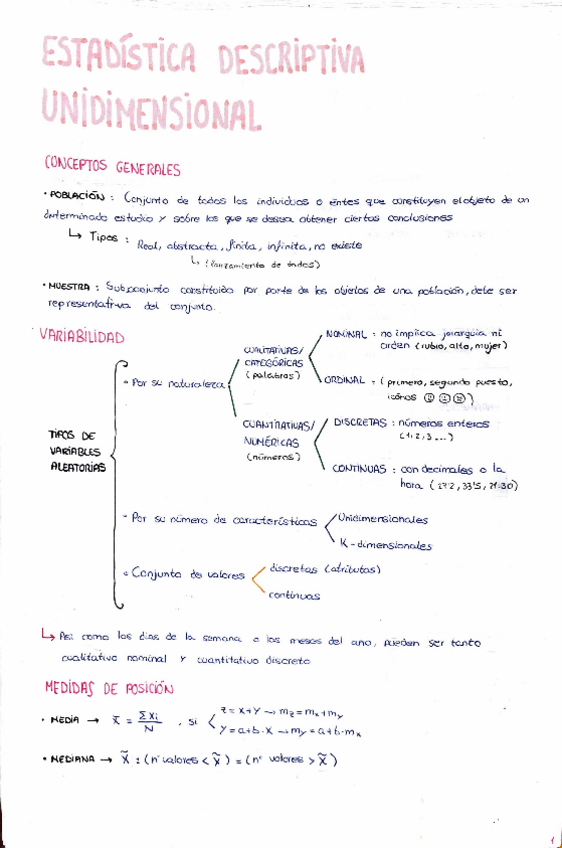 ESTADÍSTICA DESCRIPTIVA
UNIDIMENSIONAL
CONCEPTOS GENERALES
· POBLACIÓN : Conjunto de todos los individuos o entes que constituyen el objeto de un
determinado estudio y sobre los que se desea obtener ciertas conclusiones
↳ Tipos : Real, abstracta, finita, infinita, no existe
↳ (lanzamiento de dados)
· MUESTRA : Subconjunto constituido por parte de los objetos de una población, debe ser
representativa del conjunto.
VARIABILIDAD
TIPOS DE
VARIABLES
ALEATORIAS
- Por su naturaleza
CUALITATIVAS/
CATEGÓRICAS
(palabras)
NOMINAL : no implica jerarquía ni
orden (rubio, alto, mujer)
ORDINAL : (primero, segundo puesto,
iconos)
CUANTITATIVAS/
NUMÉRICAS
(números)
DISCRETAS : números enteros
(1, 2, 3 ...)
CONTINUAS : con decimales o la
hora (27'2, 33'5, 21:30)
- Por su número de características
Unidimensionales
K-dimensionales
· Conjunto de valores
discretas (atributos)
continuas
↳ Así como los días de la semana o los meses del año, pueden ser tanto
cualitativo nominal y cuantitativo discreto
MEDIDAS DE POSICIÓN
· MEDIA → x̄ = Σxi / N , si
z = x+y → m_z = m_x + m_y
y = a+b·x → m_y = a+b·m_x
· MEDIANA → x̃ : (nº valores < x̃) = (nº valores > x̃)
1